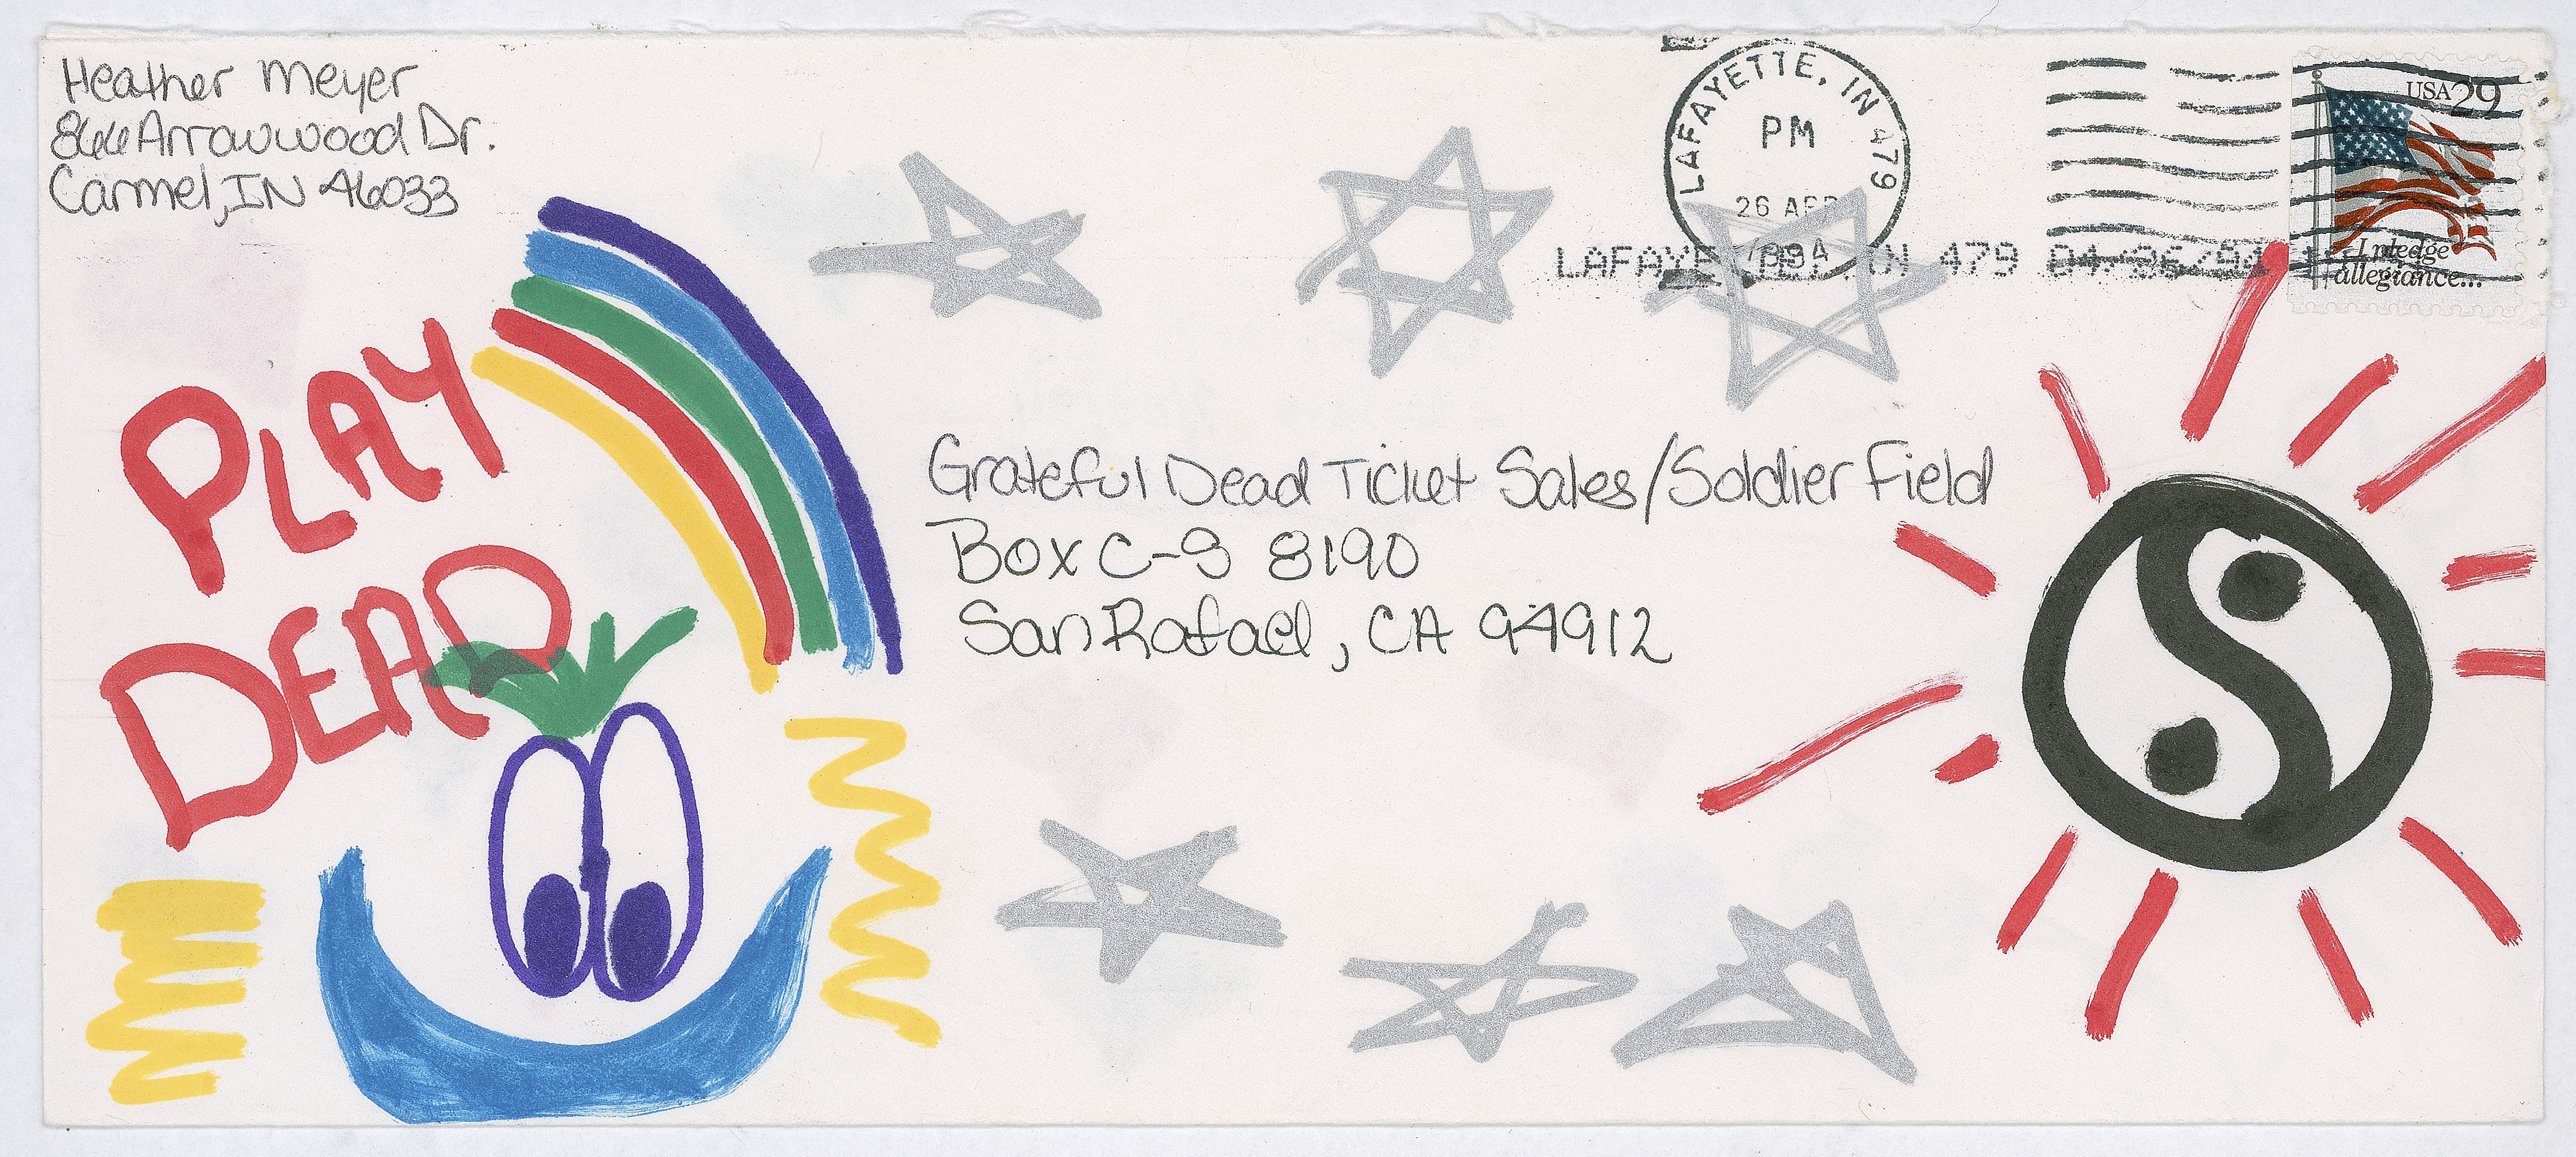 Heather Meyer
866 Arrowwood Dr.
Carmel, IN 46033
LAFAYETTE, IN 479
PM
26 APR
1994
LAFAYETTE, IN 479 04/26/94
USA 29
I pledge
allegiance...
PLAY
DEAD
Grateful Dead Ticket Sales/Soldier Field
Box C-S 8190
San Rafael, CA 94912